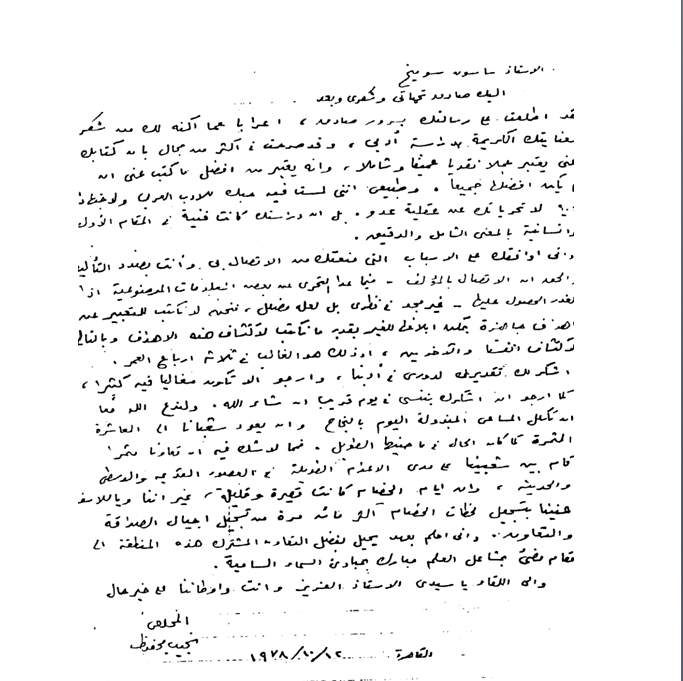 الاستاذ ساسون سوميخ
اليك صادق تحياتي وشكرى وبعد
فقد اطلعت على رسالتك بسرور صادق، اعرابا عما أكنه لك من شكر
لعنايتك الكريمة بدراسة أدبى، وقد صرحت في اكثر من مجال بان كتابك
عنى يعتبر عملا نقديا عميقا وشاملا، وانه يعتبر من افضل ما كتب عنى ان
لم يكن افضلها جميعا. وطبيعى اننى لمست فيه حبك للادب العربى
لا تحرياتك عن عقلية عدو. بل ان دراستك كانت فنية في المقام الأول
وانسانية بالمعنى الشامل والدقيق.
وانى اوافقك على الاسباب التى منعتك من الاتصال بى وأنت بصدد التأليف
والحق ان الاتصال بالمؤلف - فيما عدا التحرى عن بعض المعلومات الموضوعية اذا
تعذر الحصول عليها - غير مجد في نظرى بل لعله مضلل، فنحن لا نكتب للتعبير عن
اهداف جاهزة يمكن ابلاغها للغير بقدر ما نكتب لاكتشاف هذه الاهداف وبالتالى
لاكتشاف انفسنا والآخرين، او ذلك هو الغالب في ثلاثة ارباع العمر.
اشكر لك تقديرك لدورى في أدبنا، وارجو الا تكون مغاليا فيه كثيرا،
كما ارجو ان اشكرك بنفسى في يوم قريب ان شاء الله. ولندع الله معا
ان تكلل المساعى المبذولة اليوم بالنجاح وان يعود شعبانا الى المعاشرة
المثمرة كما كان الحال في ماضينا الطويل. فمما لا شك فيه ان تعاونا مثمرا
قام بين شعبينا على مدى الاعوام الطويلة في العصور القديمة والوسطى
والحديثة، وان ايام الخصام كانت قصيرة وقليلة، غير اننا وياللاسف
عنينا بتسجيل لحظات الخصام اكثر مائة مرة من تسجيل اجيال الصداقة
والتعاون. وانى احلم بعهد يحيل بفضل التعاون المشترك هذه المنطقة الى
مقام مضئ بمشاعل العلم مبارك بمبادئ السماء السامية.
والى اللقاء يا سيدى الاستاذ العزيز وانت واوطاننا على خير حال
المخلص
نجيب محفوظ
القاهرة ١٩٧٨/١٠/١٢